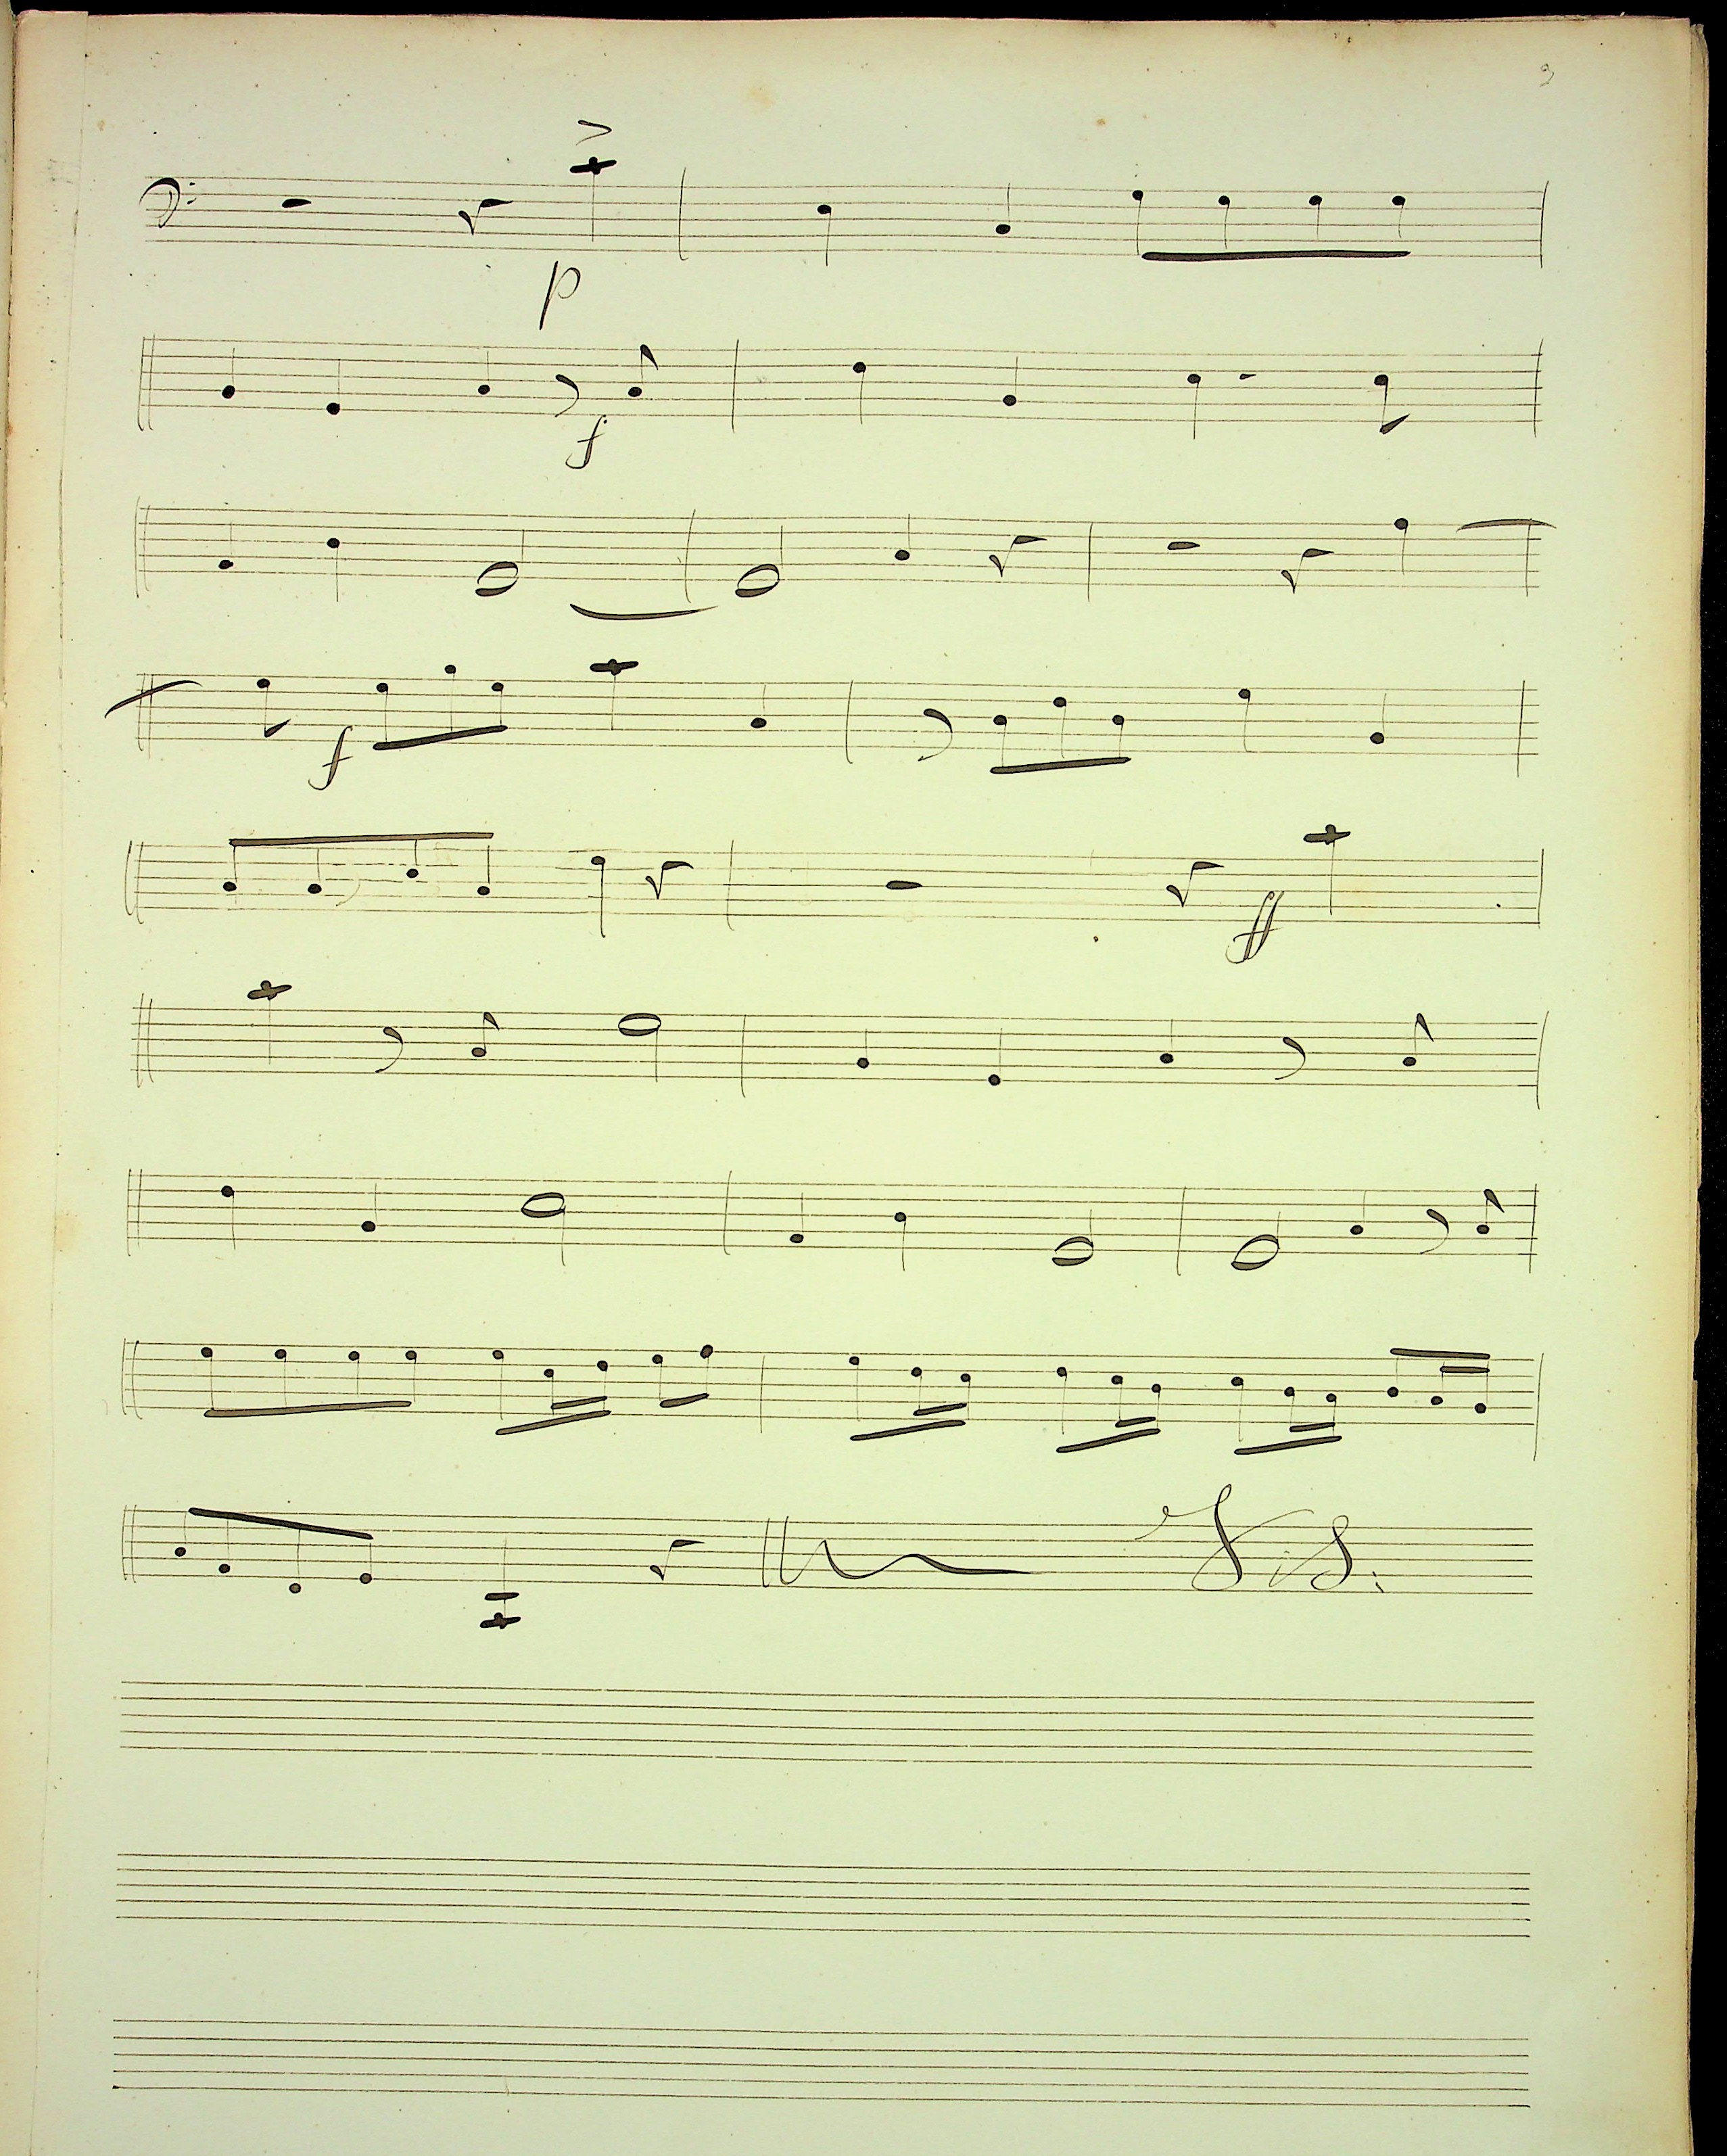 2
p
f
f
ff
V.S.